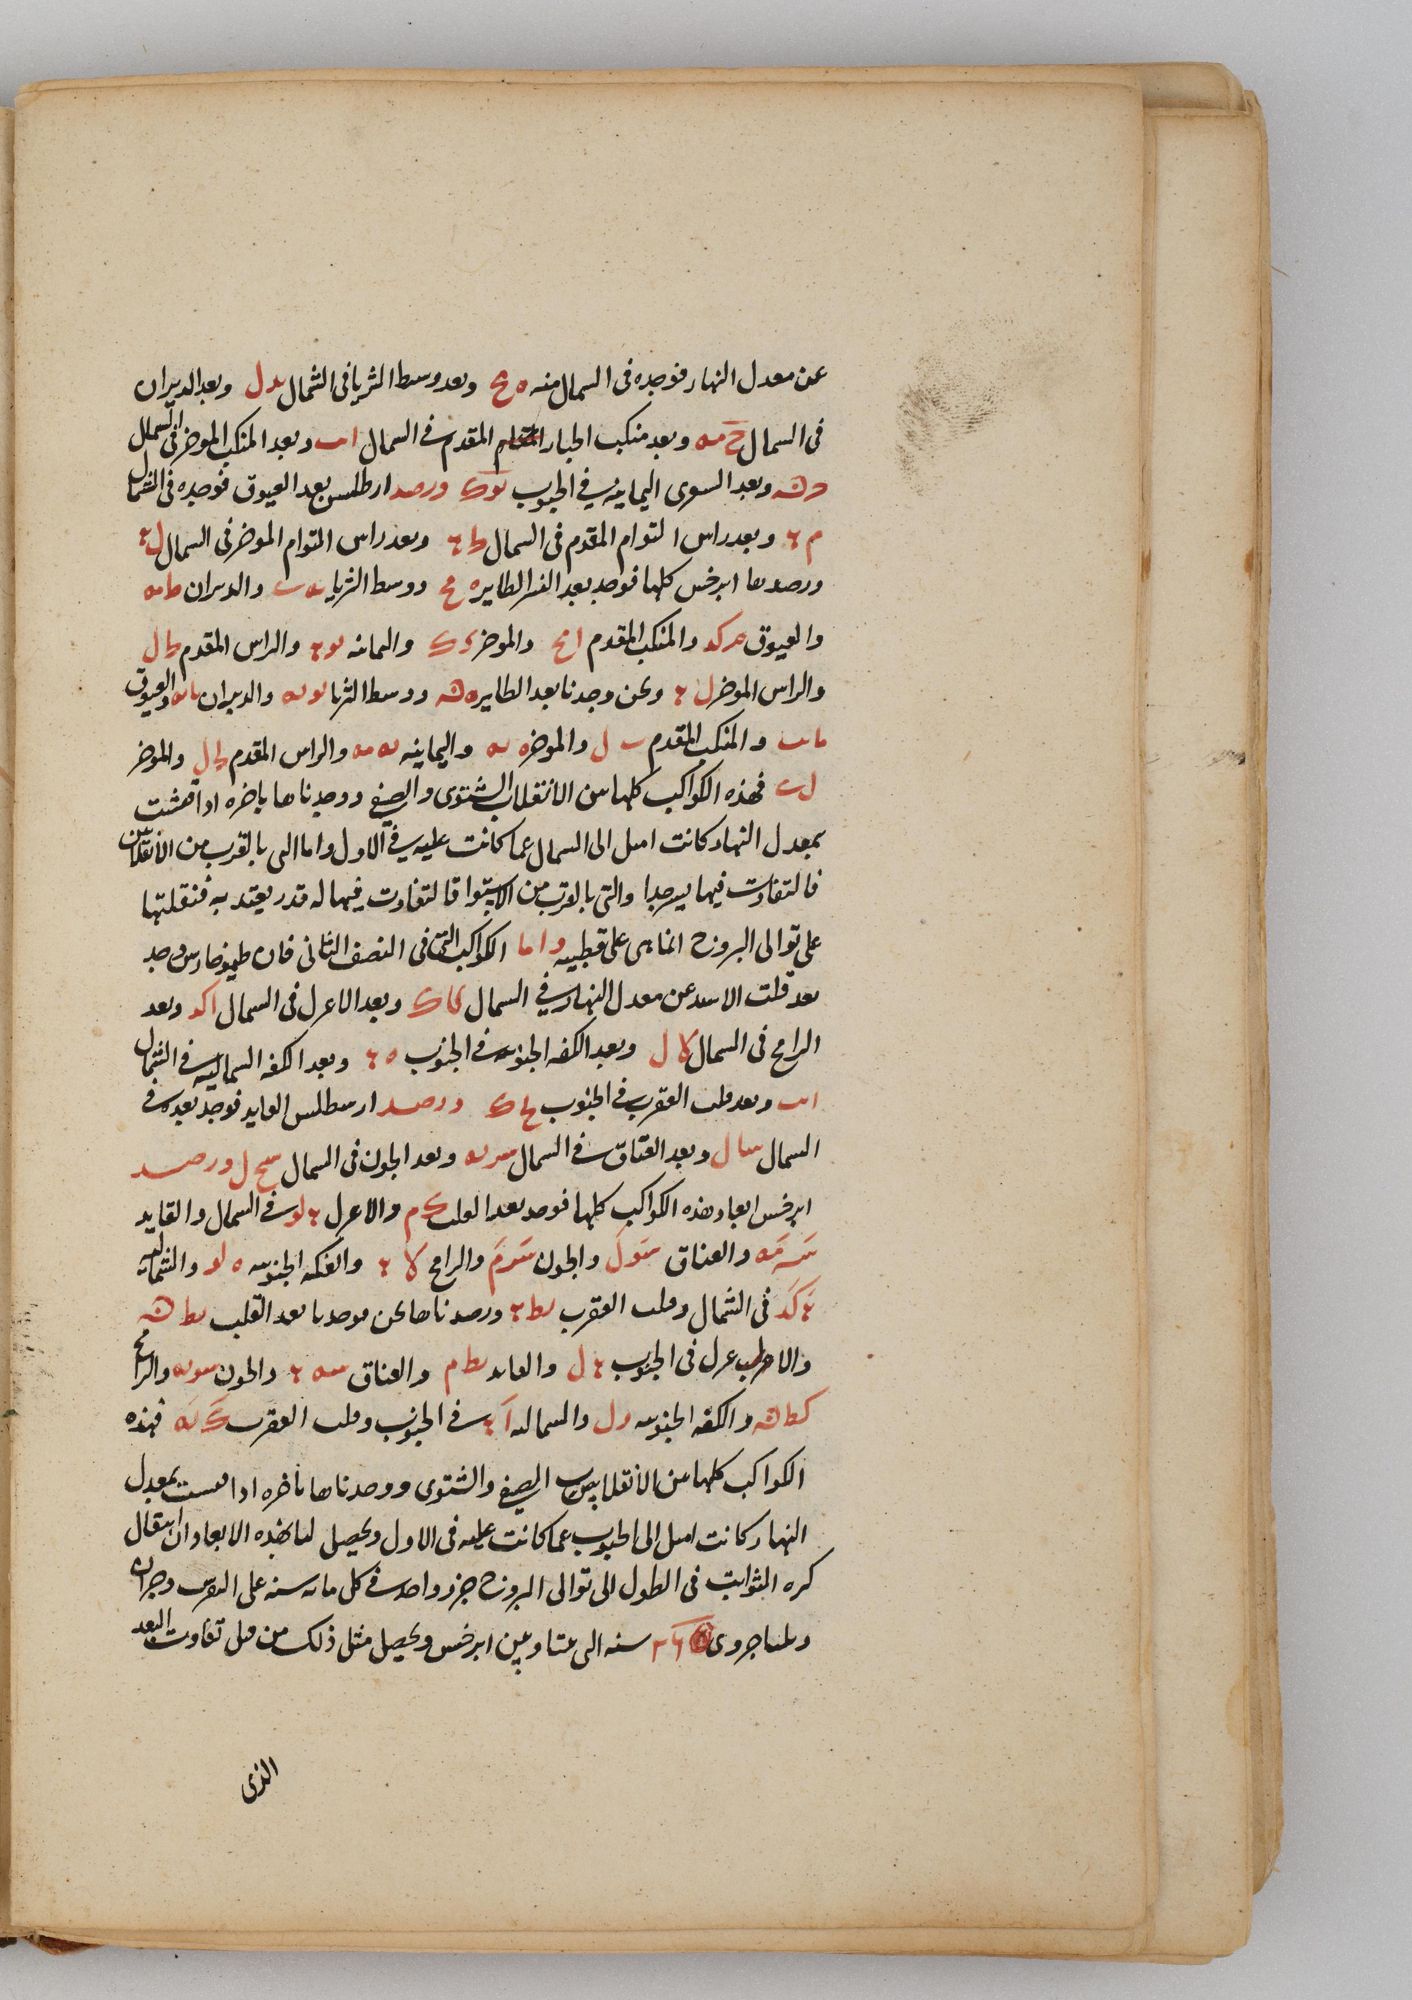 عن معدل النهار فوجده فى السمال منه ه مح وبعد وسط الثريا فى الشمال يد ل وبعد الدبران
فى السمال ح مه وبعد منكب الجبار المقدم فى السمال ا ىب وبعد المنكب الموخر فى السمال
وبعد السعرى اليمانيه فى الجنوب يو ك ورصد ارطلس بعد العيوق فوجده فى الشمال
م ء وبعد راس التوام المقدم فى السمال لج ء وبعد راس التوام الموخر فى السمال ل ء
ورصدها ابرخس كلها فوجد بعد النسر الطاير ه مح ووسط الثريا يه ى والدبران ط مه
والعيوق م كد والمنكب المقدم ا مح والموخر د ك واليمانيه يو ء والراس المقدم لج ل
والراس الموخر ل ء ونحن وجدنا بعد الطاير ه ن ووسط الثريا يو يه والدبران يا ء والعيوق
ما ى والمنكب المقدم ب ل والموخر ه يه واليمانيه يه مه والراس المقدم لج ل والموخر
ل ى فهذه الكواكب كلها من الانقلاب الشتوى والصيفى ووجدناها باخره اذا قيست
بمعدل النهار كانت اميل الى السمال عما كانت عليه فى الاول واما التى بالقرب من الانقلابين
فالتفاوت فيها يسير جدا والتى بالقرب من الاستوا فالتفاوت فيها له قدر يعتد به فنقلتها
على توالى البروج انما هى على قطبيه واما الكواكب التى فى النصف الثانى فان طيموخارس وجد
بعد قلب الاسد عن معدل النهار فى السمال كا ك وبعد الاعزل فى السمال ا كد وبعد
الرامح فى السمال لا ل وبعد الكفه الجنوبيه فى الجنوب ه ء وبعد الكفه السماليه فى الشمال
ا ىب وبعد قلب العقرب فى الجنوب يح ك ورصد ارسطلس القايد فوجد بعده فى
السمال سا ل وبعد العناق فى السمال سز يه وبعد الجون فى السمال سح ل ورصد
ابرخس ابعاد هذه الكواكب كلها فوجد بعد القلب ك م والاعزل ء لو فى السمال والقايد
س مه والعناق سو ل والجون سز م والرامح لا ء والفكه الجنوبيه ه لو والشماليه
ء كد فى الشمال وقلب العقرب يط ء ورصدناها نحن فوجدنا بعد القلب يط ن
والاعزل فى الجنوب ء ل والقايد نط م والعناق سه ء والجون سو يه والرامح
كط ن والكفه الجنوبيه ز ل والسماليه ا ء فى الجنوب وقلب العقرب ك يه فهذه
الكواكب كلها من الانقلابين الصيفى والشتوى ووجدناها باخره اذا قيست بمعدل
النهار كانت اميل الى الجنوب عما كانت عليه فى الاول ويحصل لنا بهذه الابعاد ان انتقال
كره الثوابت فى الطول الى توالى البروج جزو واحد فى كل مايه سنه على التقريب وجزان
وثلثا جزو فى ٢٦٥ سنه التى بيننا وبين ابرخس ويحصل مثل ذلك من قبل تفاوت البعد
الذى